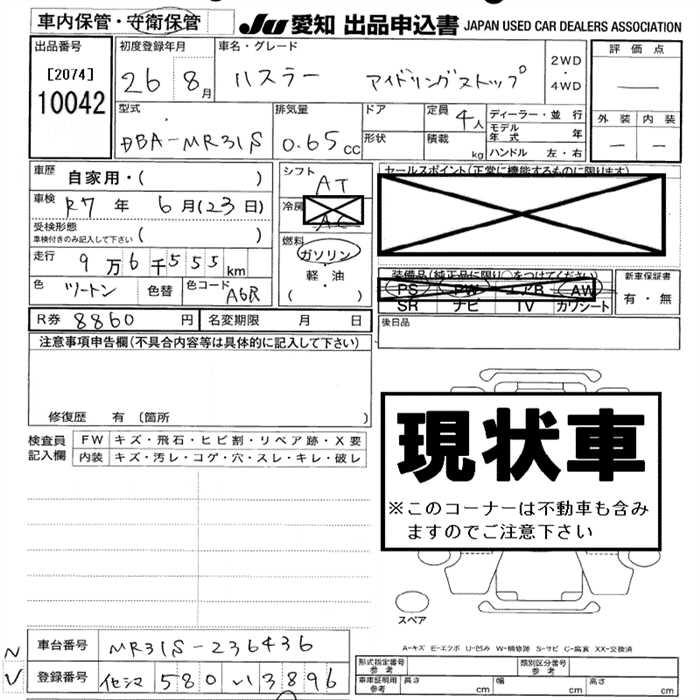 車内保管・守衛保管
JU 愛知 出品申込書 JAPAN USED CAR DEALERS ASSOCIATION
出品番号
[2074]
10042
初度登録年月
26 8月
車名・グレード
ハスラー アイドリングストップ
2WD
・
4WD
評価点
型式
DBA-MR31S
排気量
0.65cc
ドア
形状
定員 4人
積載 kg
ディーラー・並行
モデル年式 年
ハンドル 左・右
外装 内装
車歴 自家用・( )
車検 R7年 6月(23日)
受検形態
車検付きのみ記入して下さい ( )
走行 9万6千555km
色 ツートン 色替 色コード A6R
シフト
AT
冷房
AC
燃料
ガソリン・
軽・油
( )
セールスポイント(正常に機能するものに限ります)
装備品(純正品に限り○をつけてください)
PS PW エアB AW
SR ナビ TV カワシート
新車保証書
有・無
後日品
R券 8860円 名変期限 月 日
注意事項申告欄(不具合内容等は具体的に記入して下さい)
修復歴 有 (箇所 )
検査員
記入欄
FW キズ・飛石・ヒビ割・リペア跡・X要
内装 キズ・汚レ・コゲ・穴・スレ・キレ・破レ
現状車
※このコーナーは不動車も含み
ますのでご注意下さい
スペア
A-キズ E-エクボ U-凹み W-補修跡 S-サビ C-腐食 XX-交換済
車台番号 MR31S-236436
登録番号 580 い 3896
形式指定番号
参考
類別区分番号
参考
車庫証明用
参考
長さ cm 幅 cm 高さ cm